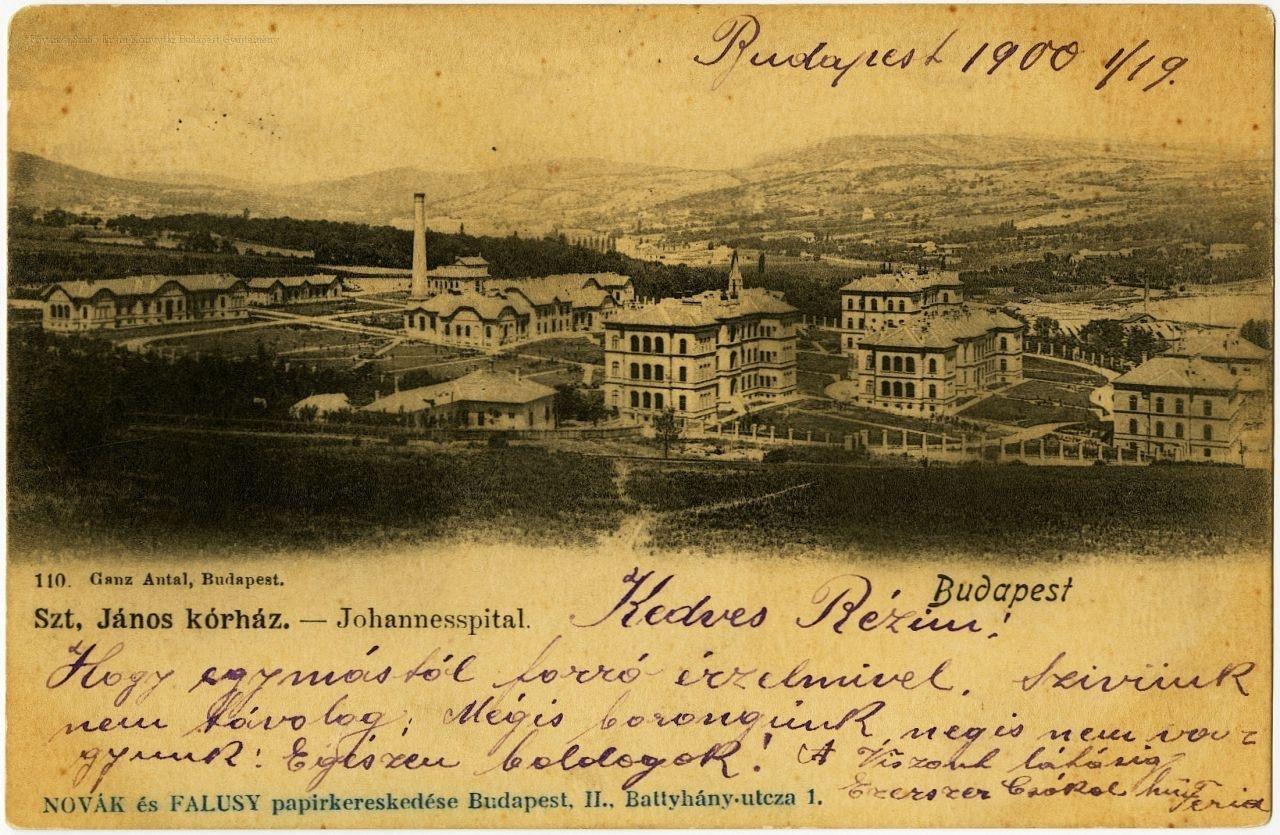 Budapest 1900 1/19.
110. Ganz Antal, Budapest.
Budapest
Szt, János kórház. — Johannesspital.
Kedves Rézim!
Hogy egymástól forró érzelmivel. Szivünk
nem távolog; Mégis borongúnk negis nem va-
gyunk: Egiszen boldogok! A Viszont látásig
Ezerszer Csókol hü Teria
NOVÁK és FALUSY papirkereskedése Budapest, II., Battyhány-utcza 1.